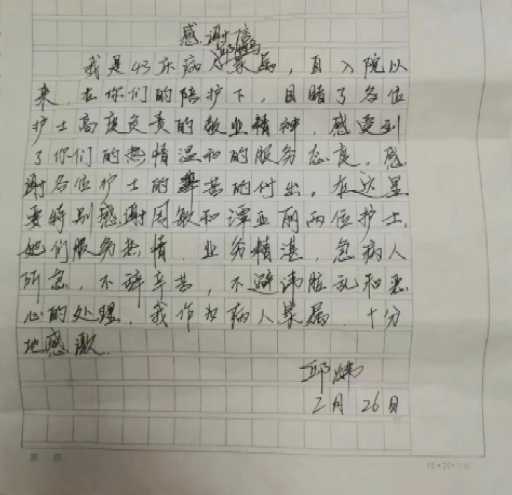 感谢信
我是43床病人家属，自入院以
来，在你们的陪护下，目睹了各位
护士高度负责的敬业精神，感受到
了你们的热情温和的服务态度，感
谢各位护士的辛苦的付出，在这里
要特别感谢周敏和谭亚丽两位护士，
她们服务热情，业务精湛，急病人
所急，不辞辛苦，不避讳脏乱和恶
心的处理，我作为病人家属，十分
地感激
邱
2月26日
15×20=300